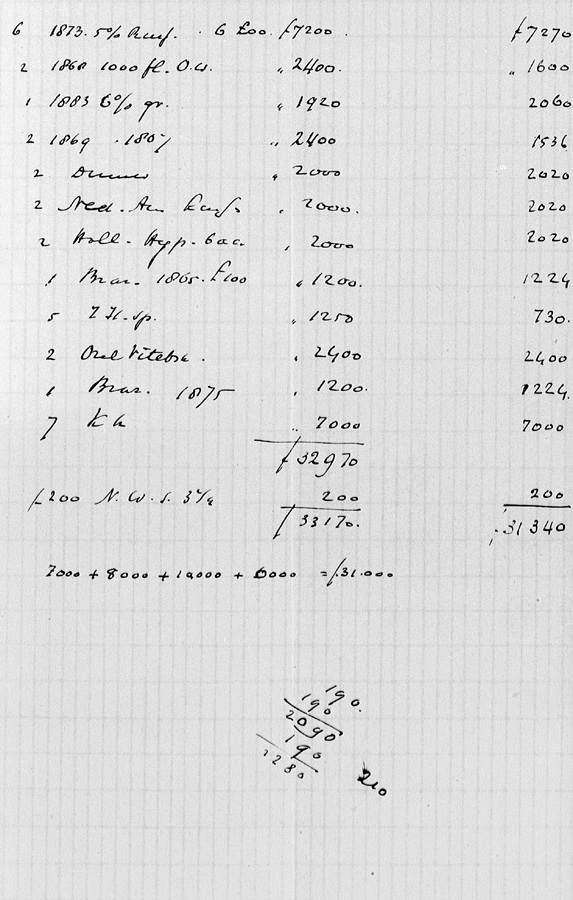 6 1873. 5% Russ. 6 £00. ƒ7200. ƒ7270
2 1868 1000 fl. O.W. „ 2400. „ 1600
1 1883 6% gr. „ 1920 2060
2 1869 . 1867 „ 2400 1536
2 „ 2000 2020
2 Ned. Am „ 2000. 2020
2 Holl. Hyp. bac. „ 2000 2020
1 Bras. 1865. £100 „ 1200. 1224
5 „ 1250 730.
2 Orel Vitebsk. „ 2400 2400
1 Bras. 1875 „ 1200. 1224
7 „ 7000 7000
ƒ32970
ƒ200 N.W.S. 200 200
ƒ33170. 31340
7000 + 8000 + 10,000 + 6000 = ƒ.31.000
190.
190
2090
190
2280
210